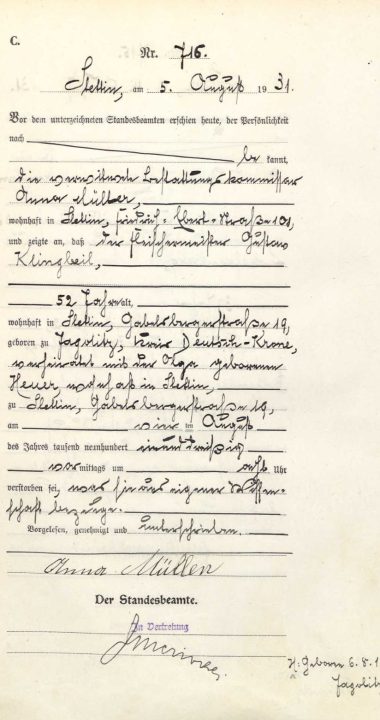 C.
Nr. 716.
Stettin, am 5. August 1931.
Vor dem unterzeichneten Standesbeamten erschien heute, der Persönlichkeit
nach be kannt,
die verwitwete Bestattungskommissar
Anna Müller,
wohnhaft in Stettin, Friedrich-Ebert-Straße 101,
und zeigte an, daß der Fleischermeister Gustav
Klingbeil,
52 Jahre alt,
wohnhaft in Stettin, Gabelsbergerstraße 19,
geboren zu Jagolitz, Kreis Deutsch-Krone,
verheiratet mit der Olga geborenen
Heuer wohnhaft in Stettin,
zu Stettin, Gabelsbergerstraße 19,
am vier ten August
des Jahres tausend neunhundert einunddreißig
vor mittags um acht Uhr
verstorben sei, was sie aus eigener Wissen-
schaft bezeuge.
Vorgelesen, genehmigt und unterschrieben.
Anna Müller
Der Standesbeamte.
In Vertretung
Geboren 6.8.1
Jagolit